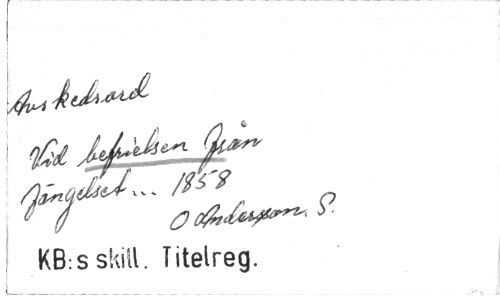 Avskedsord
Vid befrielsen från
fängelset... 1858
O Anderson, S.
KB:s skill. Titelreg.